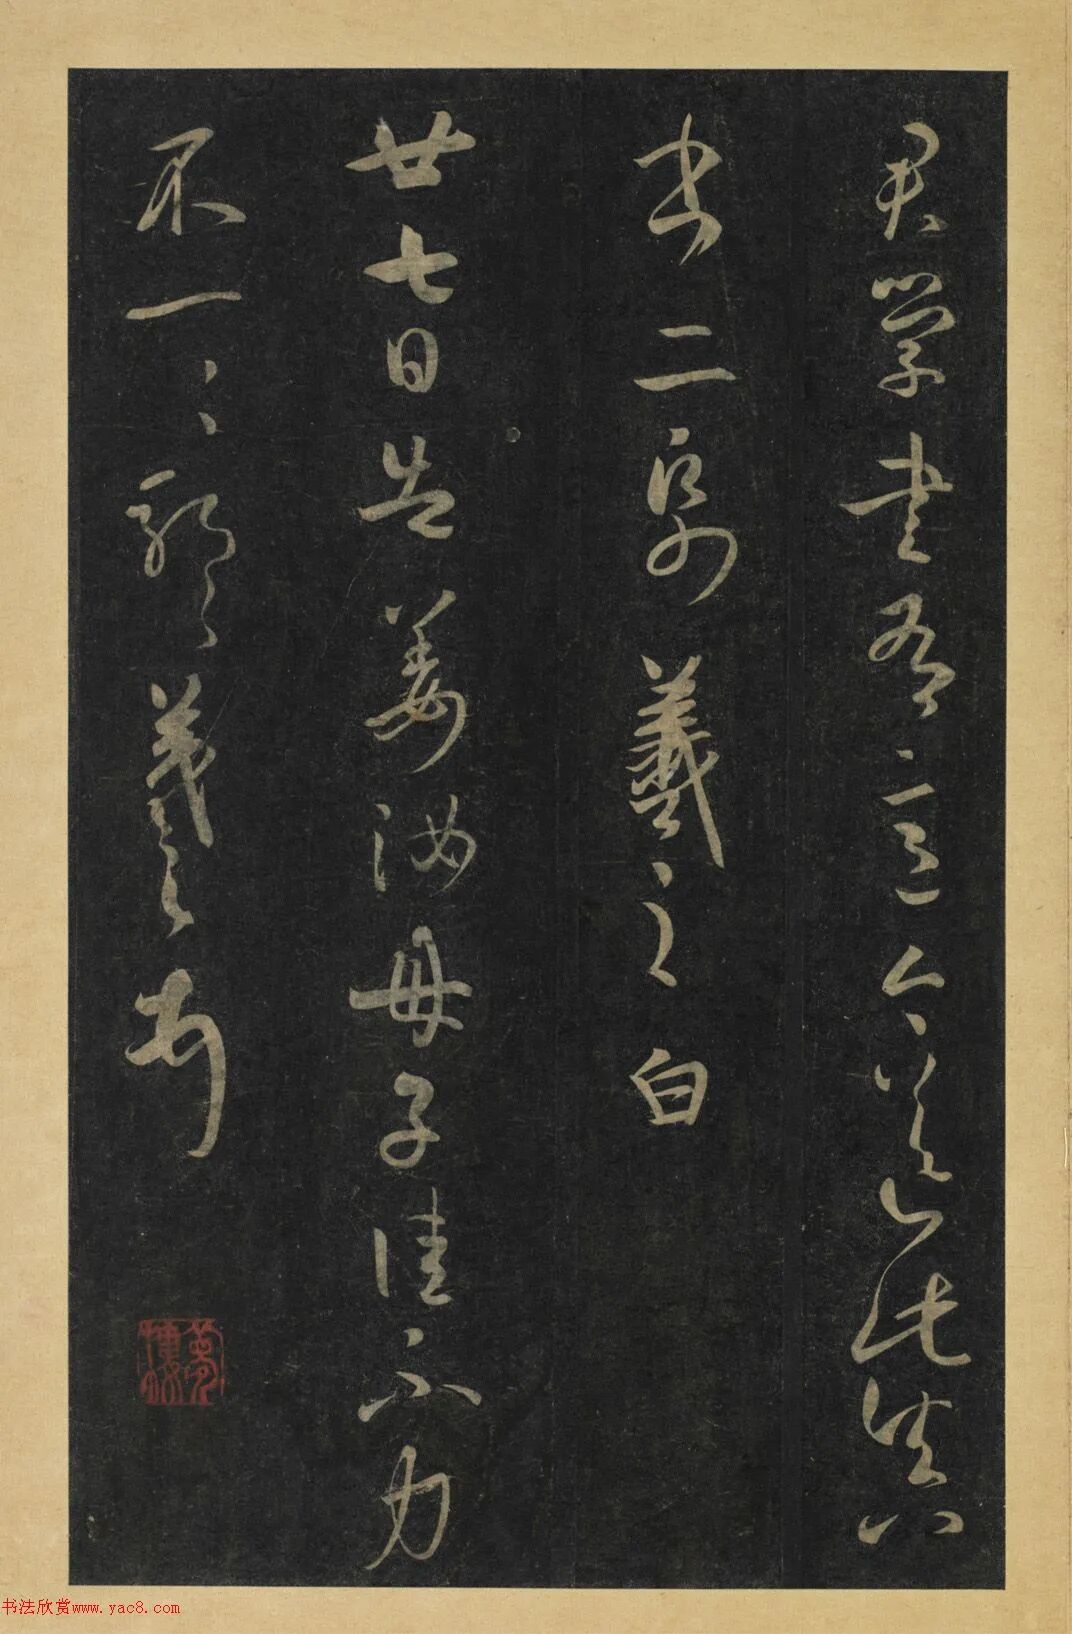 君學書有意今此八
二羲之白
廿七日告姜汝母子佳不力
不一一耶告羲之
书法欣赏www.yac8.com